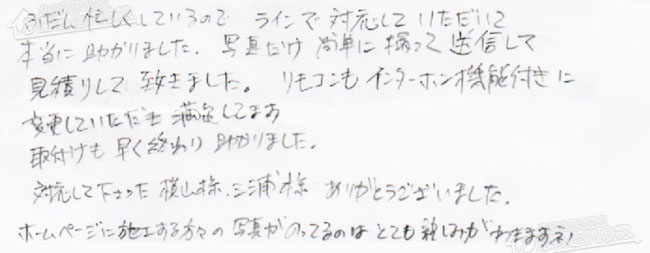 ふだん忙しくしているので ラインで対応していただいて
本当に助かりました。写真だけ簡単に撮って送信して
見積りして頂きました。リモコンもインターホン機能付きに
変更していただき満足してます
取付けも早く終わり助かりました。
対応して下さった横山様、三浦様 ありがとうございました。
ホームページに施工する方々の写真がのってるのはとても親しみがわきますネ!